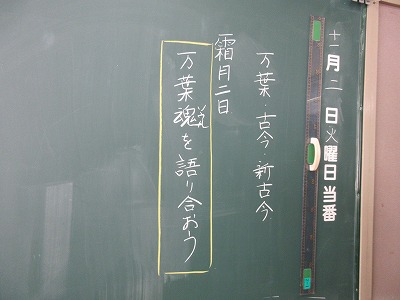 十一月二日火曜日当番
万葉・古今・新古今
霜月二日
万葉魂を語り合おう